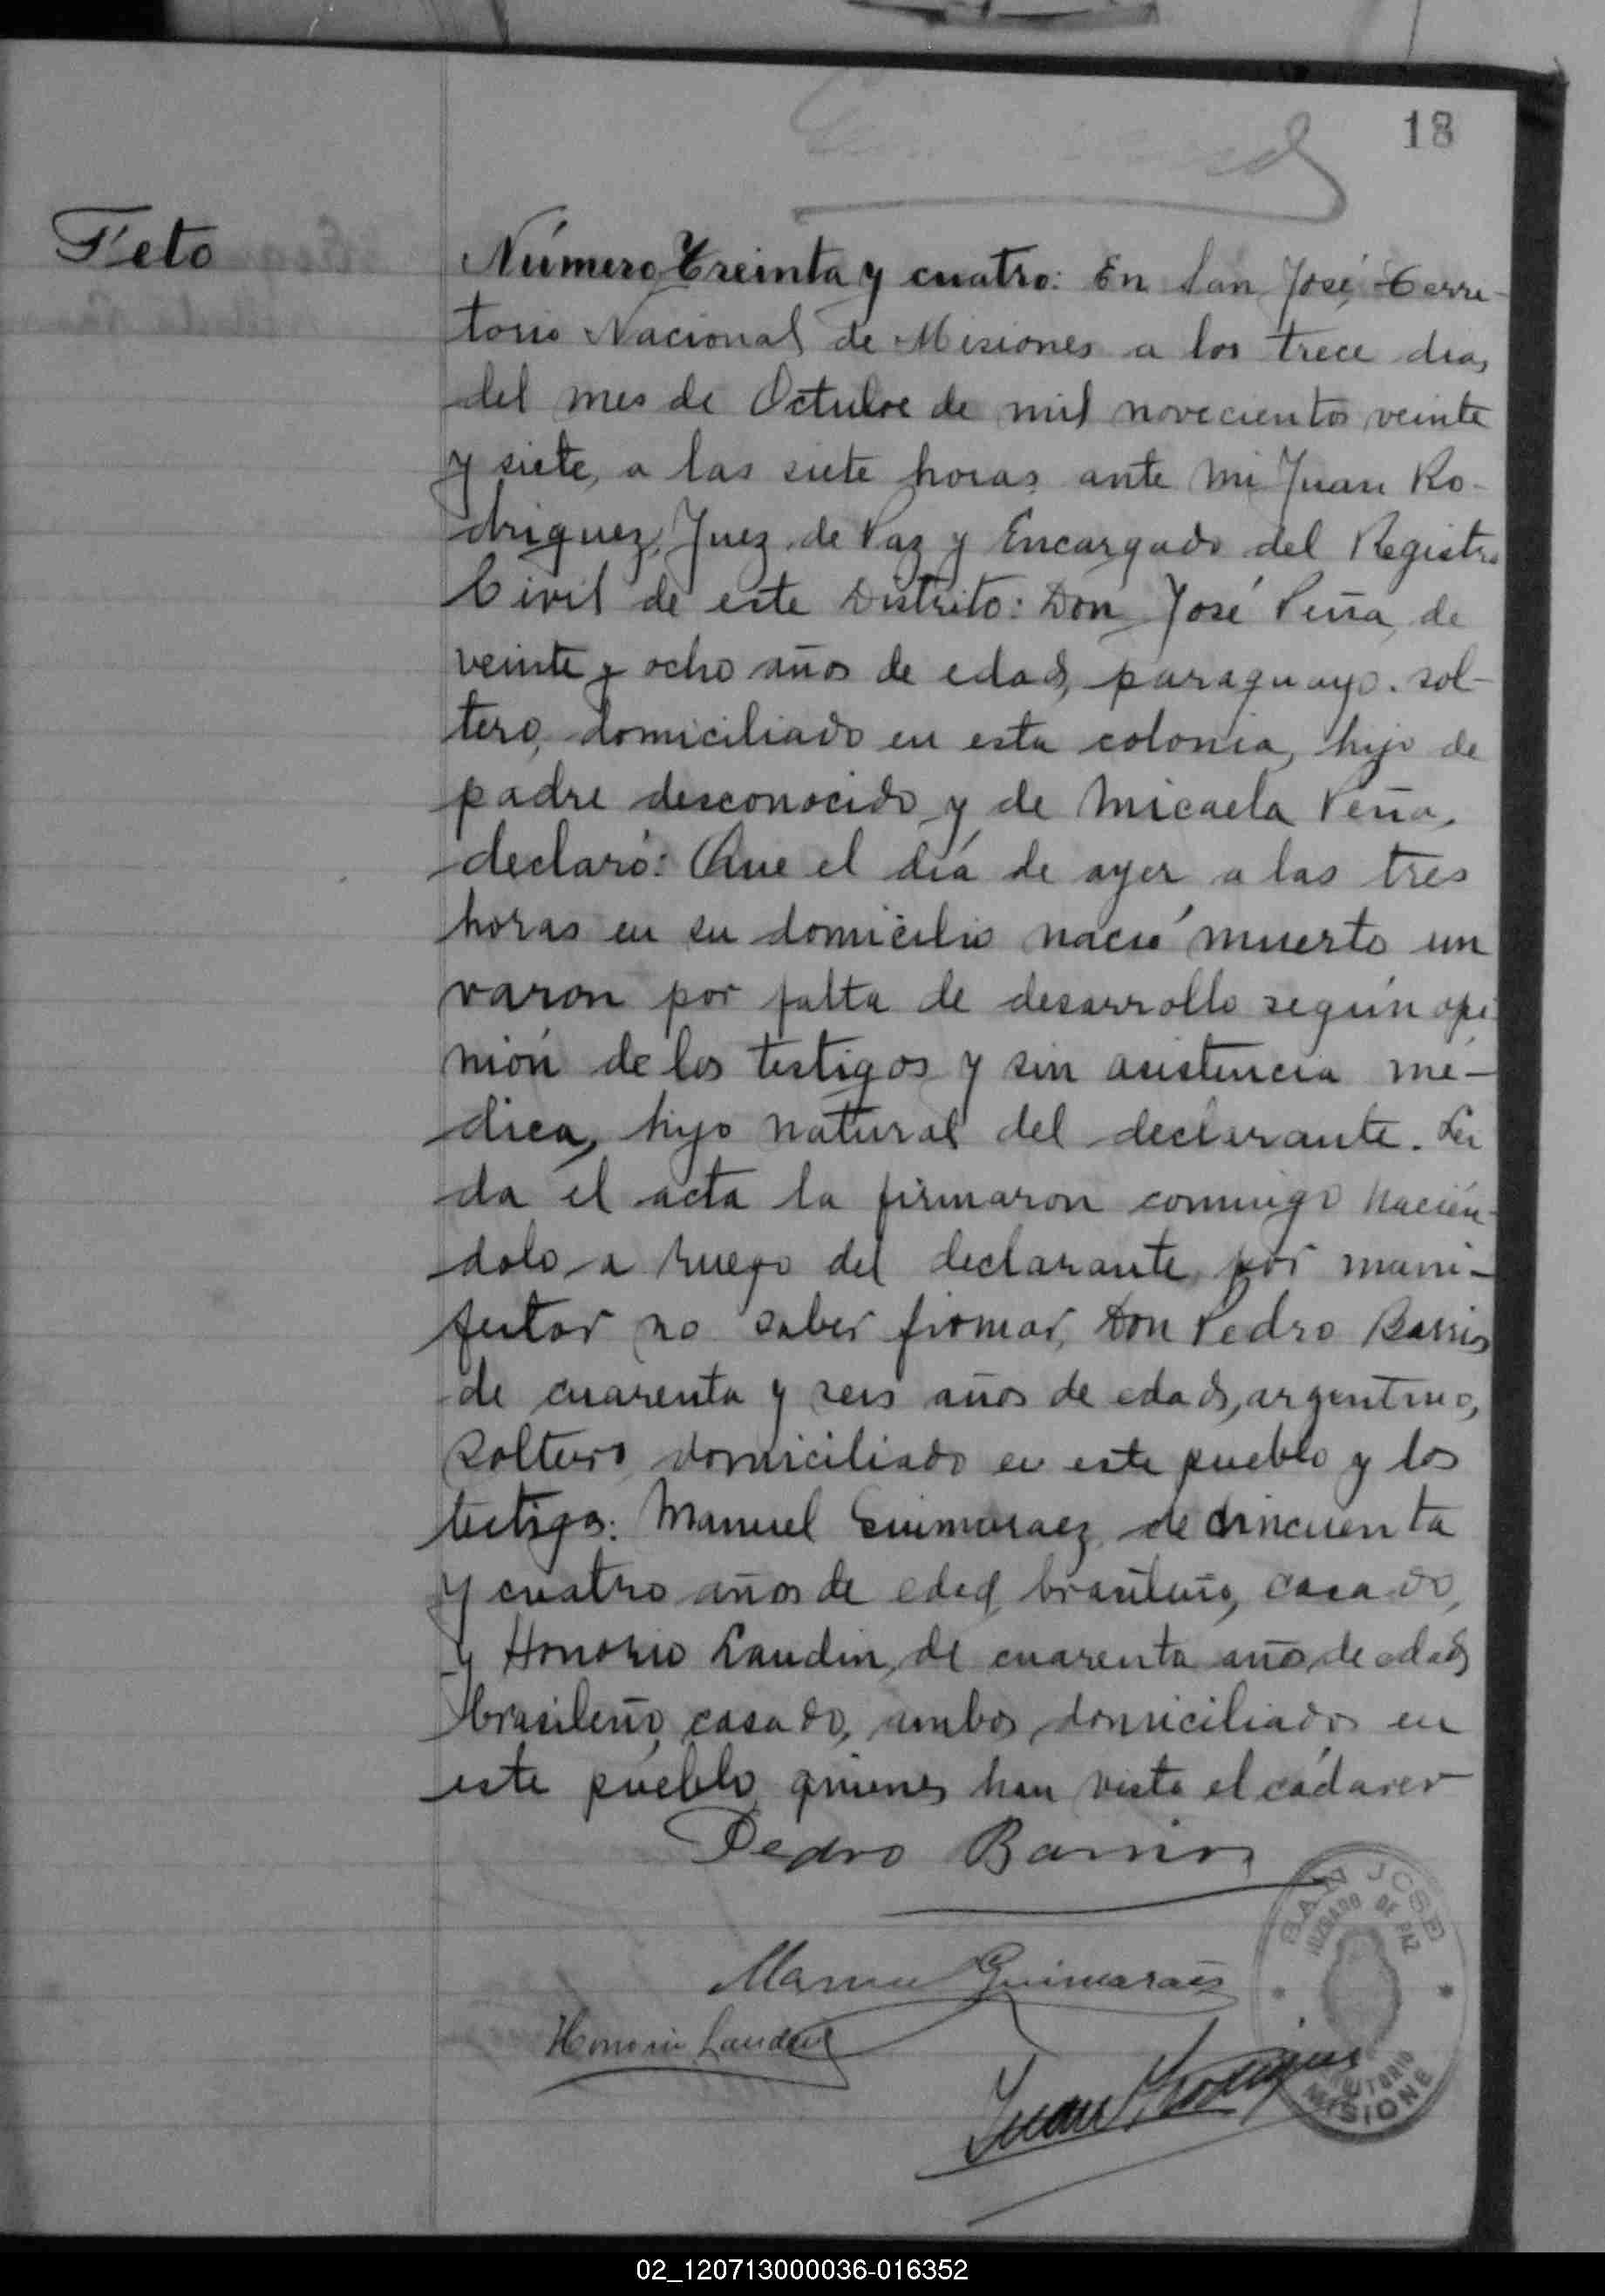 18
Feto
Número Treinta y cuatro: En San José, Terri-
torio Nacional de Misiones a los trece dias
del mes de Octubre de mil novecientos veinte
y siete, a las siete horas ante mi Juan Ro-
driguez, Juez de Paz y Encargado del Registro
Civil de este Distrito: Don José Peña, de
veinte y ocho años de edad, paraguayo. sol-
tero, domiciliado en esta colonia, hijo de
padre desconocido y de Micaela Peña,
declaró: Que el día de ayer a las tres
horas en su domicilio nació muerto un
varon por falta de desarrollo según opi
nión de los testigos y sin asistencia mé-
dica, hijo natural del declarante. Lei
da el acta la firmaron conmigo hacién-
dolo a ruego del declarante por mani-
festar no saber firmar, Don Pedro Barrios
de cuarenta y seis años de edad, argentino,
soltero domiciliado en este pueblo y los
testigos: Manuel Guimaraez, de cincuenta
y cuatro años de edad, brasileño, casado,
y Honorio Landin, de cuarenta años de edad
brasileño, casado, ambos domiciliados en
este pueblo quienes han visto el cádaver
Pedro Barrios
Manuel Guimaraes
Honorio Landin
Juan Rodriguez
SAN JOSE
JUZGADO DE PAZ
TERRITORIO
MISIONES
02_120713000036-016352